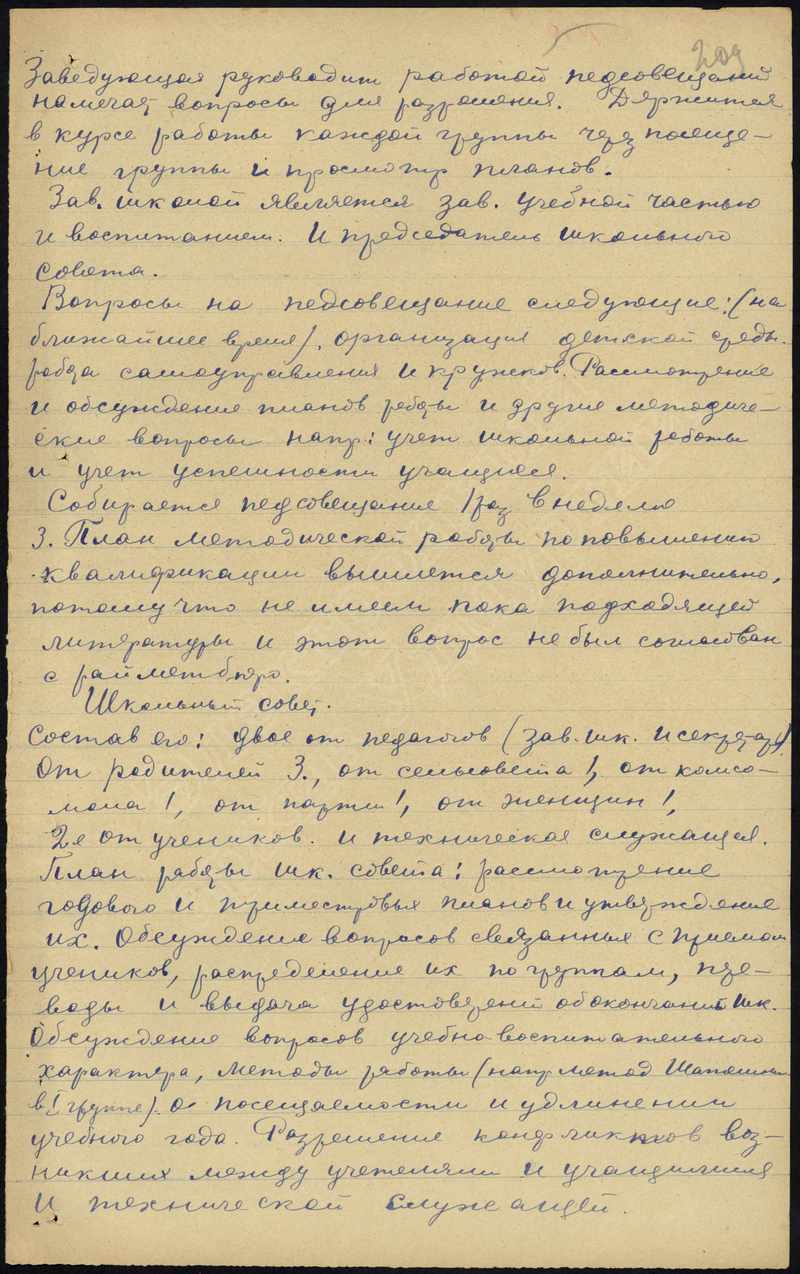 209
Заведующая руководит работой педсовещаний
намечает вопросы для разрешения. Держится
в курсе работы каждой группы через посеще-
ние группы и просмотр планов.
Зав. школой является зав. учебной частью
и воспитанием. И председатель школьного
совета.
Вопросы на педсовещание следующие: (на
ближайшее время). организация детской среды.
работа самоуправления и кружков. Рассмотрение
и обсуждение планов работы и другие методиче-
ские вопросы напр: учет школьной работы
и учет успешности учащихся.
Собирается педсовещание 1 раз в неделю
3. План методической работы по повышению
квалификации вышлется дополнительно,
потому что не имеем пока подходящей
литературы и этот вопрос не был согласован
с райметбюро.
Школьный совет.
Состав его: двое от педагогов (зав. шк. и секретарь).
От родителей 3., от сельсовета 1, от комсо-
мола 1, от партии 1, от женщин 1,
2е от учеников. и техническая служащая.
План работы шк. совета: рассмотрение
годового и триместровых планов и утверждение
их. Обсуждение вопросов связанных с приемом
учеников, распределение их по группам, пере-
воды и выдача удостоверений об окончании шк.
Обсуждение вопросов учебно воспитательного
характера, методы работы (напр метод
в 1 группе). О посещаемости и удлинении
учебного года. Разрешение конфликтов воз-
никших между учителями и учащимися
и технической служащей.